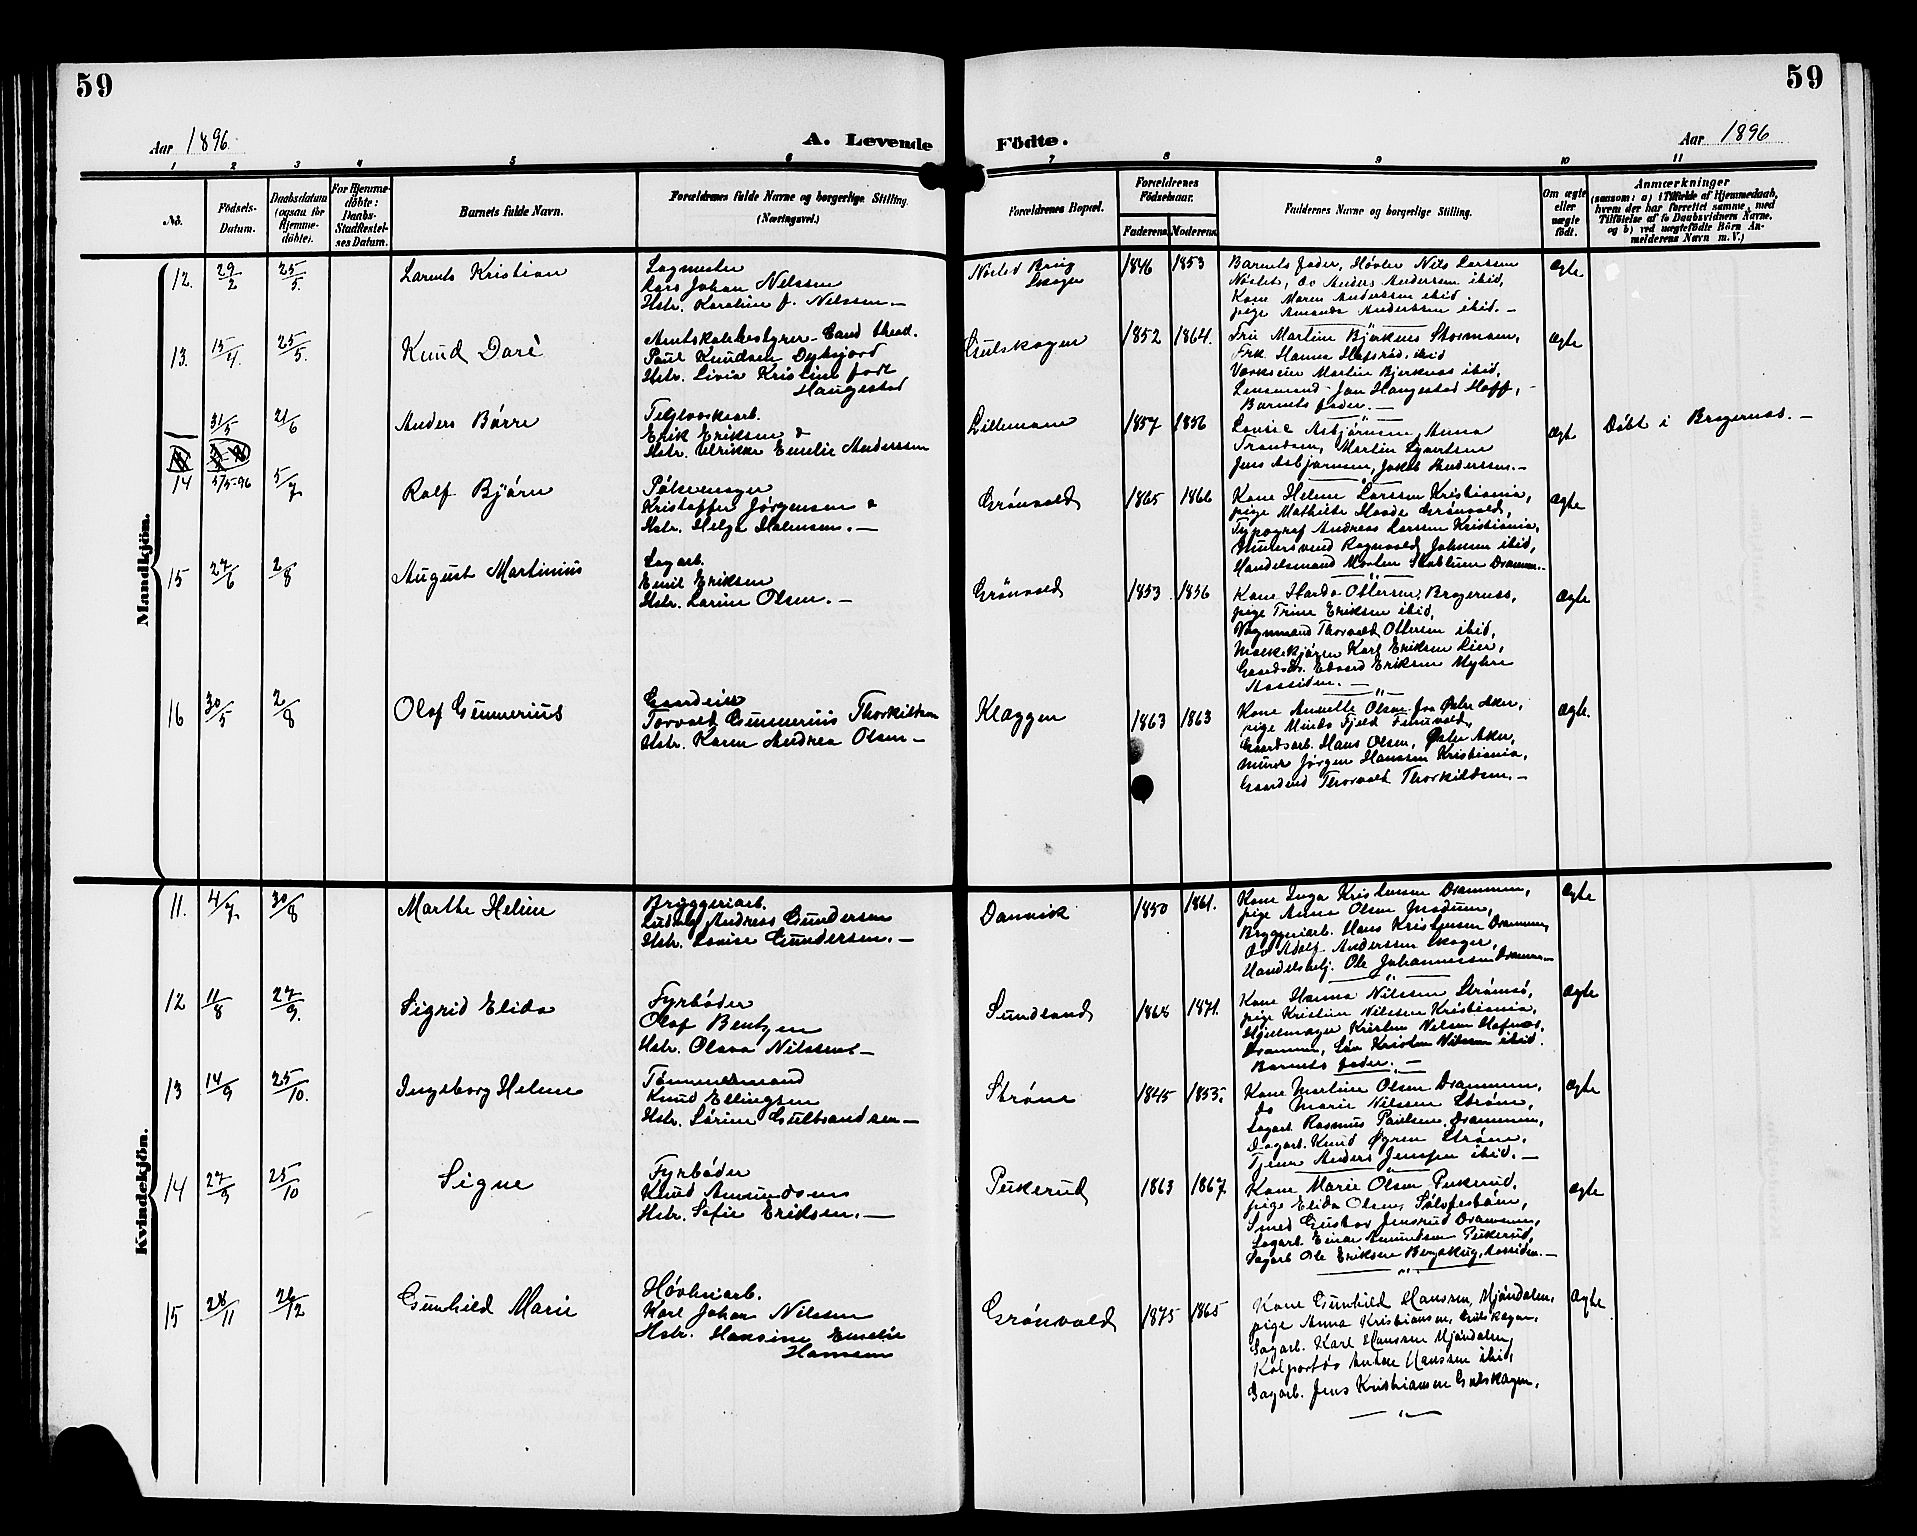 59
59
Aar 1896.
A. Levende
Födte.
Aar 1896
1 2 3 4 5 6 7 8 9 10 11
No.
Födsels-
Datum.
Daabsdatum
(ogsaa for
Hjemme-
döbte).
For Hjemme-
döbte:
Daabs-
Stadfæstel-
ses Datum.
Barnets fulde Navn.
Forældrenes fulde Navne og borgerlige Stilling.
(Næringsvei.)
Forældrenes Bopæl.
Forældrenes
Födselsaar.
Faderens.
Moderens.
Faddernes Navne og borgerlige Stilling.
Om ægte
eller
uægte
födt.
Anmærkninger
(saasom: a) i Tilfælde af Hjemmedaab,
hvem der har forrettet samme, med
Tilföielse af to Daabsvidners Navne,
og b) ved uægtefödte Börn An-
melderens Navn m. V.)
Mandkjön.
12. 29/2 25/5. Laurits Kristian
Sagmester
Lars Johan Nilssen
Hstr. Karoline f. Nilssen. —
Nøsted Brug
Skoger
1846 1853
Barnets fader, Høvler Nils Larsen
Nøsted, do Anders Anderssen ibid,
Kone Maren Anderssen ibid
pige Amanda Anderssen ibid. —
Ægte
13. 15/4. 25/5. Knud Daré
Amtsskolebestyrer Cand. theol.
Paul Knudsen Dyksjord
Hstr. Livia Kristine født
Haugestad
Gulskogen
1852 1864.
Fru Martine Bjerknes Stormoen,
Frk. Hanna ibid
Værkseier Martin Bjerknes ibid,
Lensmand Jan Haugestad Hoff,
Barnets fader. —
Ægte
31/5 21/6 Anders Børre
Teglværksarb.
Erik Eriksen &
Hstr. Ulrikke Emelie Anderssen
Lillemoen
1857 1856
Louise Asbjørnsen, Anna
Trondsen, Martin Syvertsen
Jens Asbjørnsen, Jakob Anderssen. —
Ægte
Døbt i Bragernæs. —
14 5/5-96 5/7. Rolf Bjørn
Pølsemager
Kristoffer Jørgensen &
Hstr. Helga Halvorsen. —
Grønvold
1865 1866
Kone Helene Larssen Kristiania,
pige Mathilde Haade Grønvold,
Typograf Andreas Larssen Kristiania,
Murersvend Ragnvald Johnsen ibid,
Handelsmand Morten Skoblum Dramm.
Ægte
15 27/6 2/8 August Martinius
Sagarb.
Emil Eriksen
Hstr. Larine Olsen. —
Grønvold
1853 1856
Kone Ottersen Bragernæs,
pige Trine Eriksen ibid,
Vognmand Thorvald Ottersen ibid,
Karl Eriksen Lier,
Edvard Eriksen Myhre
Aassiden. —
Ægte
16 30/5 2/8 Olaf Gunnerius
Gaardeier
Torvald Gunnerius Thorkildsen
Hstr. Karen Andrea Olsen —
Kloggen
1863 1863
Kone Annette Olsen fra Østre Aker,
pige Minda Fjeld
Gaardsarb. Hans Olsen, Østre Aker,
Murer Jørgen Hanssen Kristiania,
Thorvald Thorkildsen. —
Ægte.
Kvindekjön.
11. 4/7. 30/8 Marthe Heline
Bryggeriarb.
Ludolf Andreas Gundersen
Hstr. Lovise Gundersen. —
Danvik
1850 1861.
Kone Inga Kristensen Drammen,
pige Anna Olsen Modum,
Bryggeriarb. Hans Kristensen Drammen,
do Adolf Anderssen Skoger,
Handelsbetj. Ole Johannessen Drammen —
Ægte
12 11/8 27/9. Sigrid Elida
Fyrbøder
Olaf Bentzen
Hstr. Olava Nilssen —
Sundland
1868 1871.
Kone Hanna Nilssen Strømsø,
pige Kristine Nilssen Kristiania,
Hjulmager Kristen Nilsen
Drammen, Søn Kristen Nilssen ibid.
Barnets fader. —
Ægte
13 14/9 25/10. Ingeborg Helene
Tømmermand
Knud Ellingsen
Hstr. Sørine Gulbrandsen —
Strøm
1845 1853.
Kone Martine Olsen Drammen,
do Marie Nilssen Strøm,
Sagarb. Rasmus Paulsen Drammen,
Dagarb. Knud Øyren Strøm,
Tjener Anders Jenssen ibid. —
Ægte
14 27/9 25/10 Signe
Fyrbøder
Knud Amundsen
Hstr. Sofie Eriksen. —
Pukerud
1863 1867
Kone Marie Olsen Pukerud,
pige Elida Olsen,
Smed Gustav Jensrud Drammen,
Sagarb. Einar Amundsen Pukerud,
Sagarb. Ole Eriksen Aassiden. —
Ægte
15 28/11 26/12 Gunhild Marie
Høvleriarb.
Karl Johan Nilssen
Hstr. Hansine Emelie
Hanssen
Grønvold
1875 1865
Kone Gunhild Hanssen, Mjøndalen,
pige Anna Kristiansen, Gulskogen,
Sagarb. Karl Hanssen Mjøndalen,
Kolportør Anton Hanssen ibid,
Sagarb. Jens Kristiansen Gulskogen,
Ægte